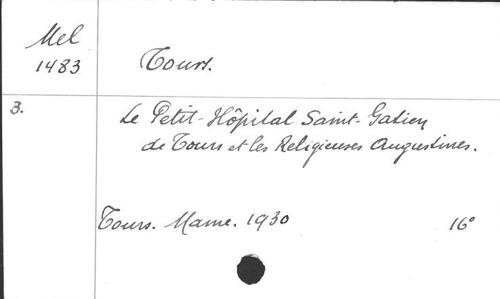 Mel
1483
Tours.
3.
Le Petit-Hôpital Saint-Gatien
de Tours et les Religieuses Augustines.
Tours. Mame. 1930
16°